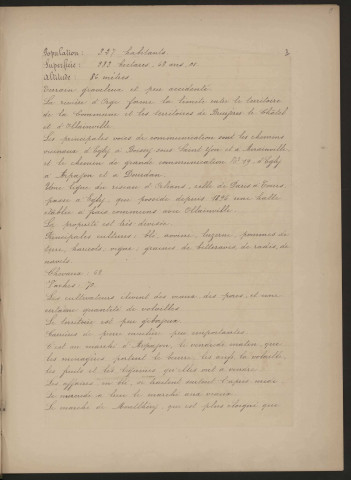 3
Population : 337 habitants
Superficie : 382 hectares, 48 ares,
Altitude : 82 mètres
Terrain graveleux et peu accidenté.
La rivière d'Orge forme la limite entre le territoire
de la Commune et les territoires de Bruyères le Châtel
et d'Ollainville.
Les principales voies de communication sont les chemins
vicinaux d'Egly à Boissy sous Saint Yon et à
et le chemin de grande communication N° 19, d'Egly
à Arpajon et à Dourdan.
Une ligne du réseau d'Orléans, celle de Paris à Tours,
passe à Egly, que possède depuis 1894 une halte
établie à frais communs avec Ollainville.
La propriété est très divisée.
Principales cultures : blé, avoine, luzerne, pommes de
terre, haricots, vigne, graines de betteraves de radis, de
navets.
Chevaux : 48
Vaches : 70
Les cultivateurs élèvent des veaux, des porcs, et une
certaine quantité de volailles.
Le territoire est peu giboyeux.
Carrières de pierre meulière peu importantes.
C'est au marché d'Arpajon, le vendredi matin, que
les ménagères portent le beurre, les œufs, la volaille,
les fruits et les légumes qu'elles ont à vendre.
Les affaires en blé, se traitent surtout l'après-midi
Le marché de Montlhéry, qui est plus éloigné que